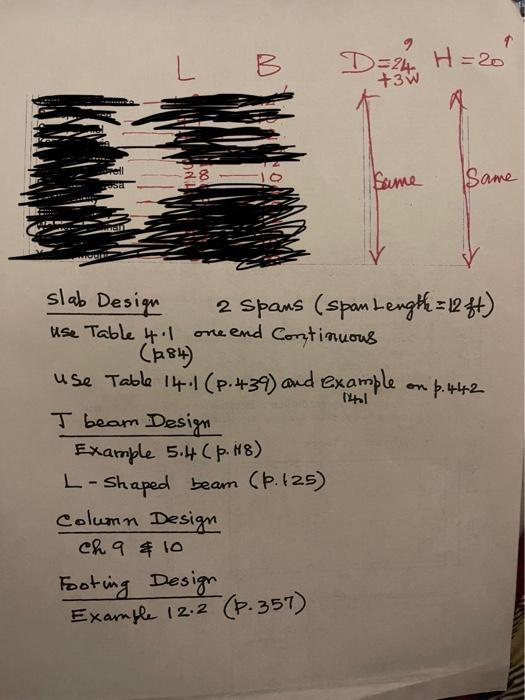 L B D=24' H=20'
+3W
28 — 10
Same Same
Slab Design 2 spans (span Length = 12 ft)
use Table 4.1 one end Continuous
(p.84)
use Table 14.1 (p.439) and Example on p.442
14.1
T beam Design
Example 5.4 (p.118)
L-Shaped beam (p.125)
Column Design
Ch 9 & 10
Footing Design
Example 12.2 (p.357)